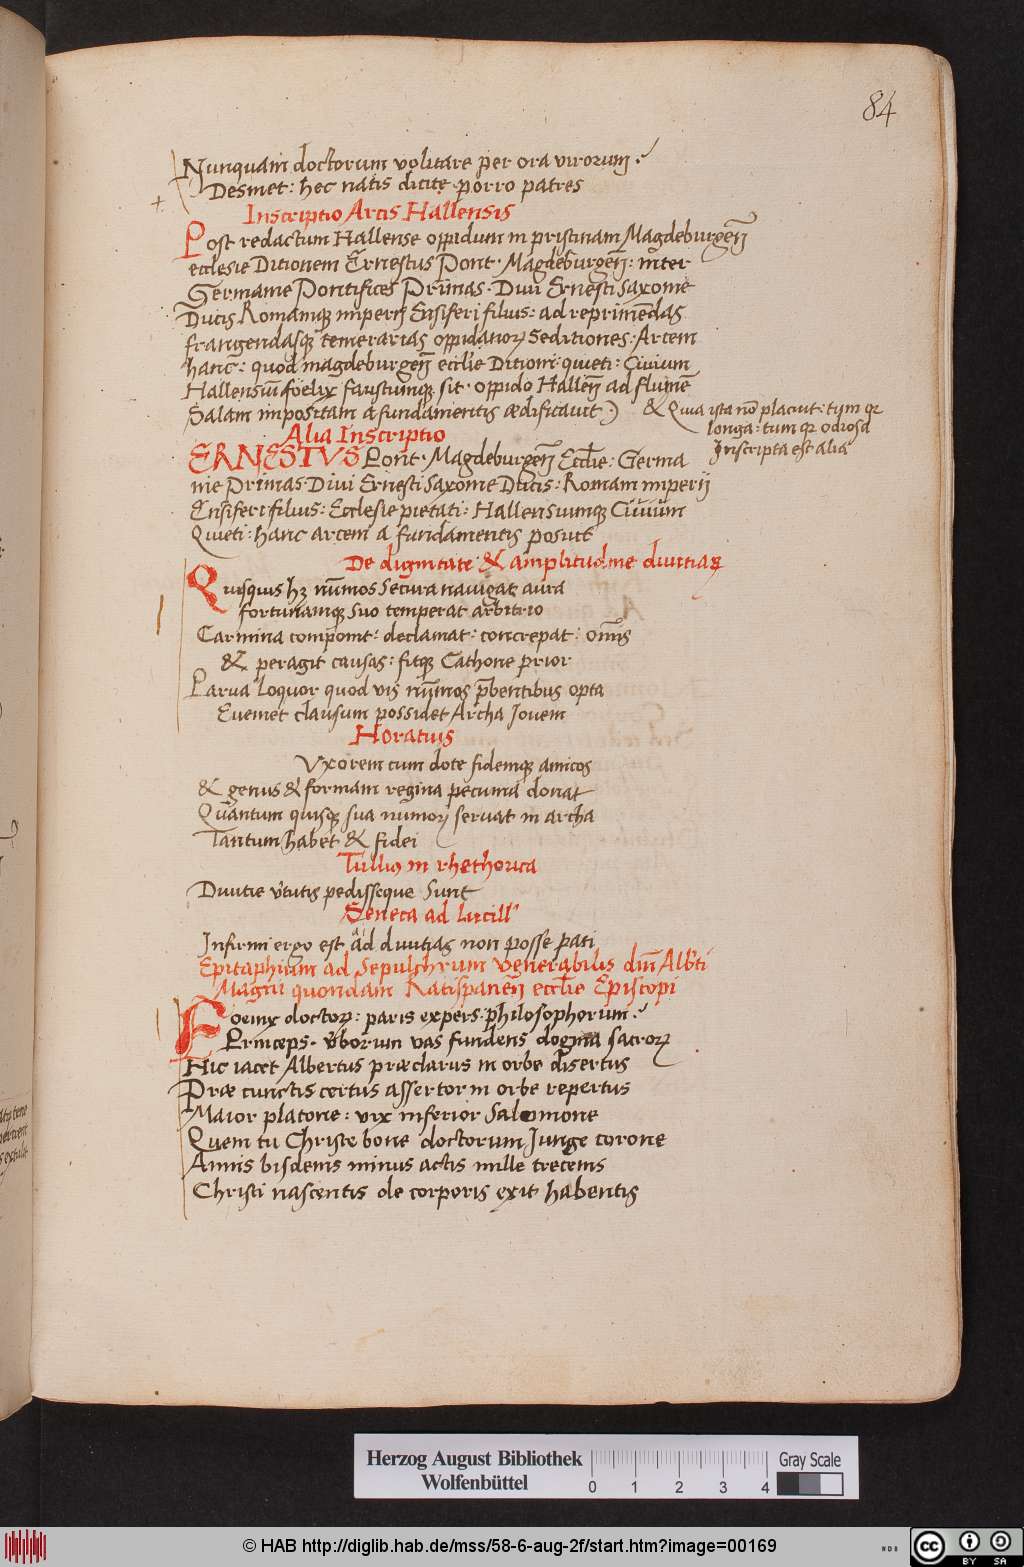 84
Nunquam doctorum volitare per ora virorum.
Desinet: hec natis dicite porro patres
Inscriptio Arcis Hallensis
Post redactum Hallense oppidum in pristinam Magdeburgen̄
ecclesie Ditionem Ernestus Pont. Magdeburgen̄: inter
Germanie Pontifices Primas. Divi Ernesti Saxonie
Ducis Romanique imperij Ensiferi filius: ad reprimēdas
frangendasque temerarias oppidanoꝝ Seditiones. Arcem
hanc: quod magdeburgen̄ eccl̄ie Ditioni. quieti: Civium
Hallensiū foelix faustumque sit. oppido Hallen̄ ad flumē
Salam impositam a fundamentis ædificavit.
& Quia ista nō placuit: tum qꝛ
longa: tum qꝛ odiosa
Inscripta est alia
Alia Inscriptio
ERNESTVS Pont. Magdeburgen̄ Eccl̄ie: Germa
nie Primas. Divi Ernesti Saxonie Ducis: Romani imperij
Ensiferi filius: Ecclesie pietati: Hallensiumque Civium
Quieti: hanc arcem a fundamentis posuit
De dignitate & amplitudine divitiaꝝ
Quisquis hꝫ nūmos Secura navigat aura
fortunamque suo temperat arbitrio
Carmina componit: declamat: concrepat: om̄is
& peragit causas: fitque Cathone prior
Parva loquor quod vis nūmos p̄sentibus opta
Eveniet clausum possidet Archa Jovem
Horatius
Vxorem cum dote fidemque amicos
& genus & formam regina pecunia donat
Quantum quisque sua numoꝝ servat in archa
Tantum habet & fidei
Tullius in rhethorica
Divitie v̄tutis pedisseque Sunt
Seneca ad lucill'
Infirmi ergo est ād divitias non posse pati
Epitaphium ad Sepulchrum venerabilis dn̄i Alb'ti
Magni quondam Ratispanen̄ eccl̄ie Episcopi
Foenix doctoꝝ: paris expers. philosophorum.
Princeps. v̄borum vas fundens dogma sacroꝝ
Hic iacet Albertus præclarus in orbe disertus
Præ cunctis certus assertor in orbe repertus
Maior platone: vix inferior Salomone
Quem tu Christe bone doctorum Junge corone
Annis bisdenis minus actis mille trecenis
Christi nascentis de corporis exit habentis
Herzog August Bibliothek
Wolfenbüttel
0 1 2 3 4
Gray Scale
© HAB http://diglib.hab.de/mss/58-6-aug-2f/start.htm?image=00169
cc BY SA